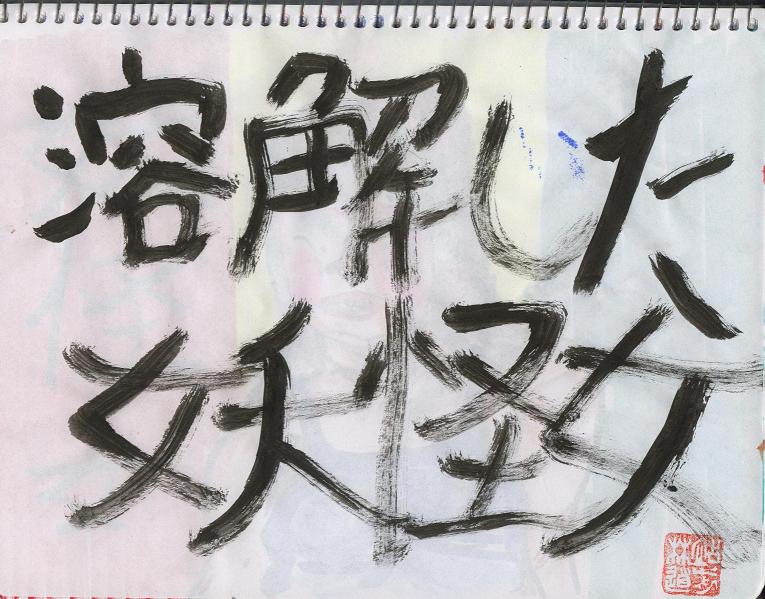 溶解した
妖怪女